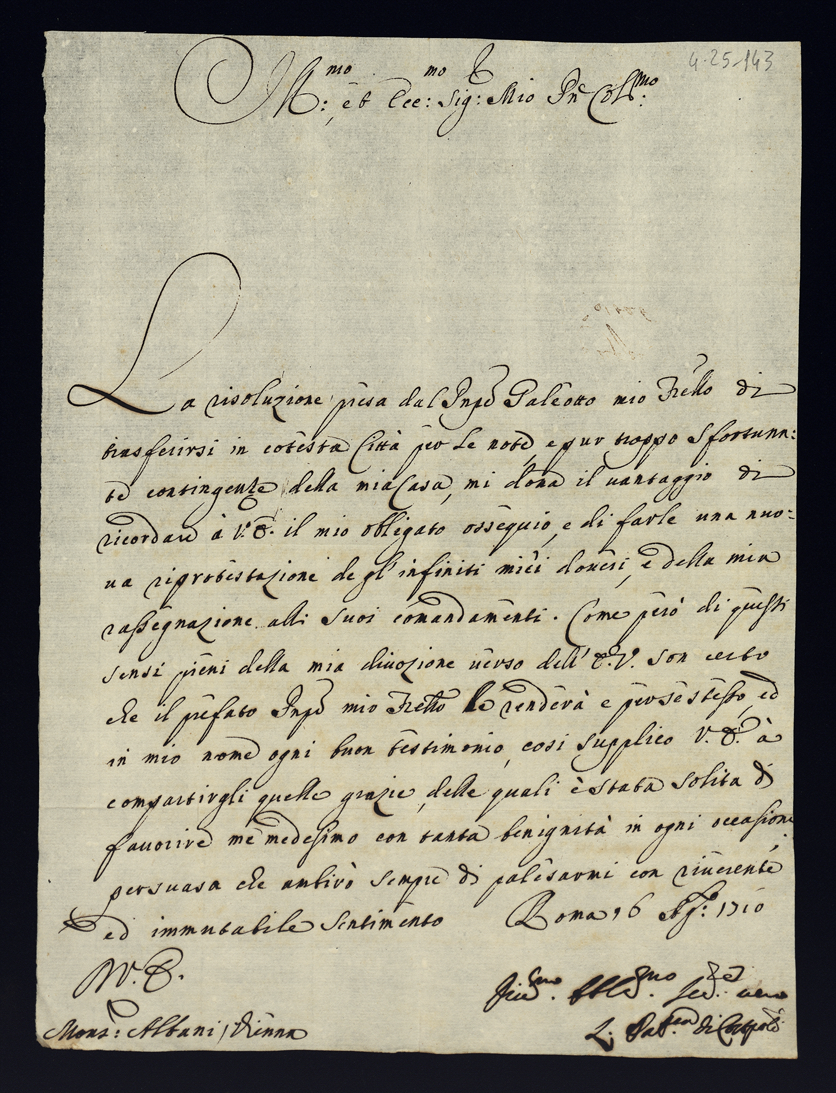 4-25-143
Ill:mo et Ecc:mo Sig:r Mio Pne Col:mo
La risoluzione presa dal Inpo Galeotto mio Frello di
trasferirsi in cotesta Città per le note, e pur troppo sfortuna:
te contingenze della mia Casa, mi dona il vantaggio di
ricordare à V.E. il mio obligato ossequio, e di farle una nuo:
va riprotestazione degl'infiniti miei doveri, e della mia
rassegnazione alli suoi comandamenti. Come però di questi
sensi pieni della mia divozione verso dell'E.V. son certo
che il prefato Inpo mio Frello le renderà e per se stesso, ed
in mio nome ogni buon testimonio, così supplico V.E. à
compartirgli quelle grazie, delle quali è stata solita di
favorire me medesimo con tanta benignità in ogni occasione,
persuasa che ambirò sempre di palesarmi con riverente
ed immutabile sentimento Roma 16 1710
V.E.
Mons: Albani, Vienna
vero